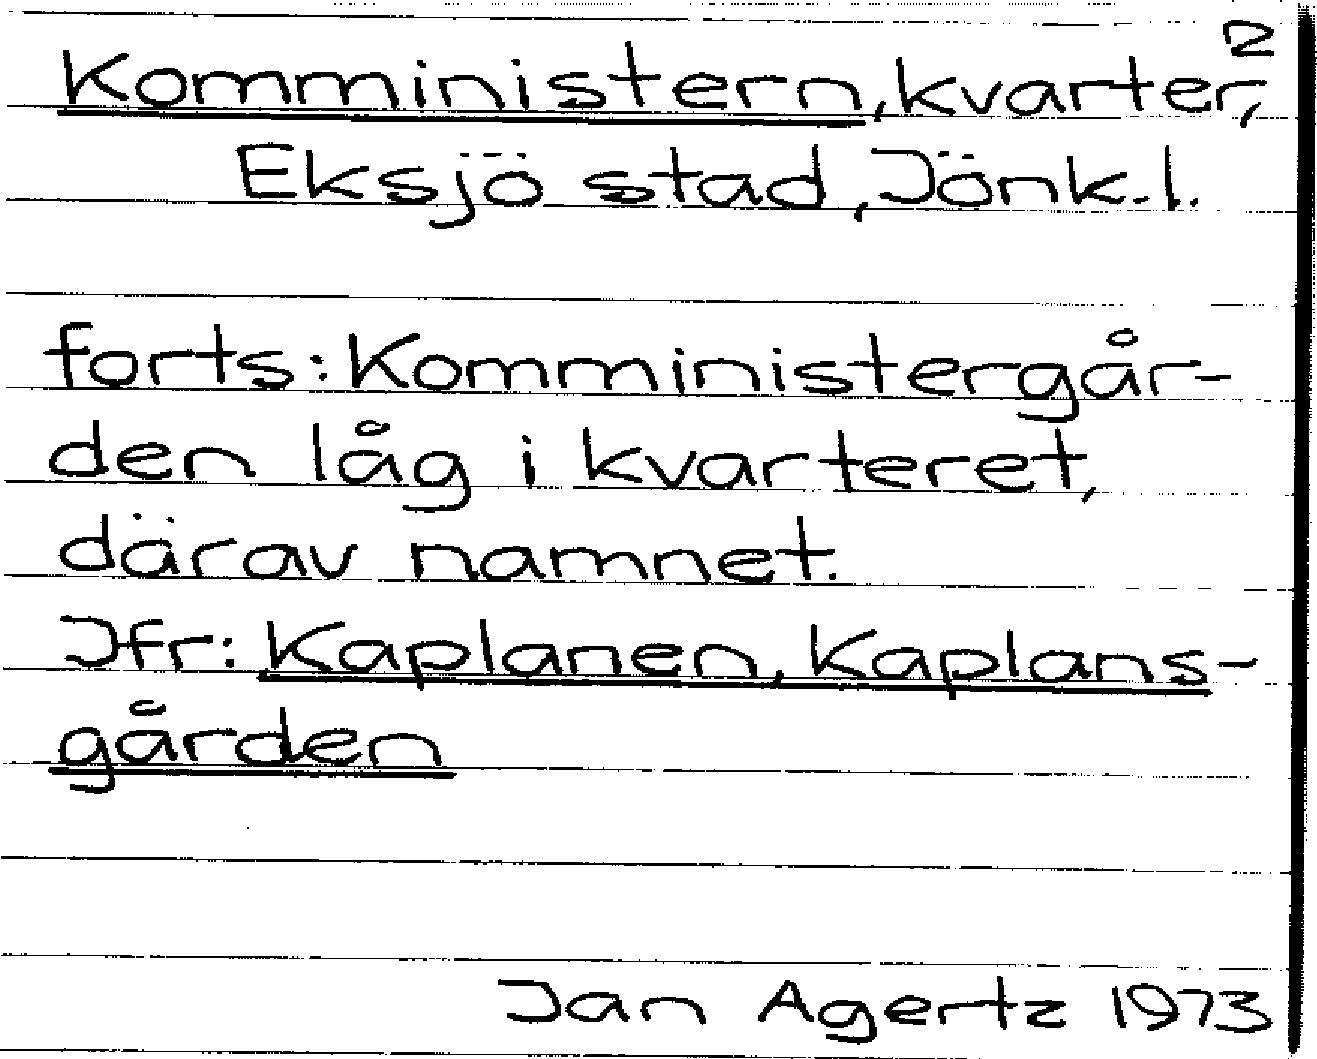 2
Komministern, kvarter,
Eksjö stad, Jönk. l.
forts: Komministergår-
den låg i kvarteret,
därav namnet.
Jfr: Kaplanen, Kaplans-
gården
Jan Agertz 1973